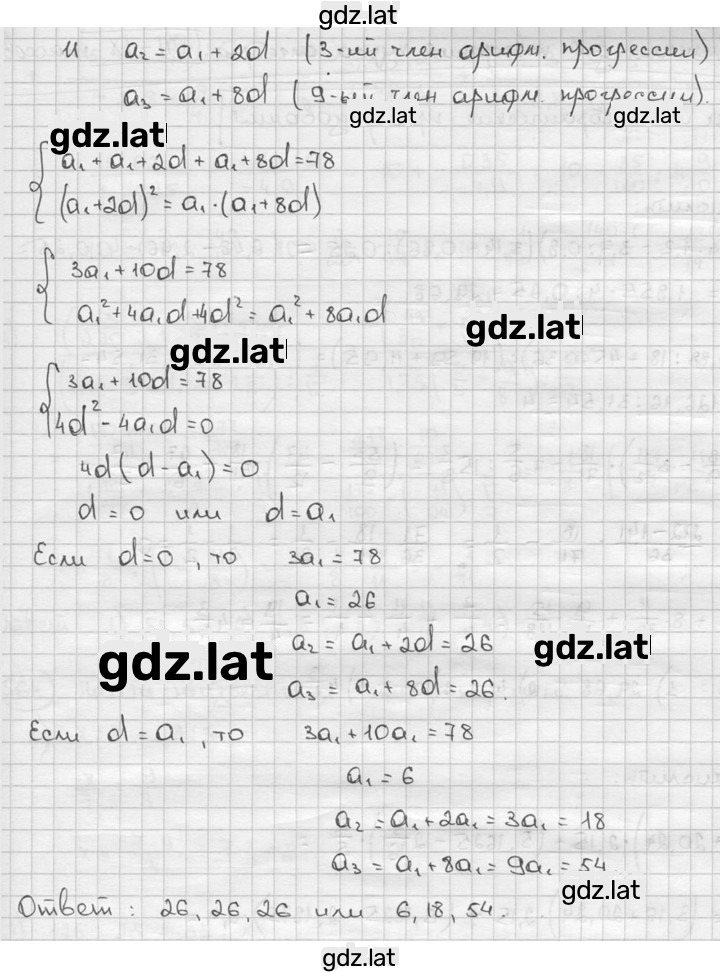 gdz.lat
и a₂ = a₁ + 2d (3-ий член арифм. прогрессии)
a₃ = a₁ + 8d (9-ый член арифм. прогрессии).
gdz.lat gdz.lat
gdz.lat
a₁ + a₁ + 2d + a₁ + 8d = 78
(a₁+2d)² = a₁·(a₁+8d)
3a₁ + 10d = 78
a₁² + 4a₁d + 4d² = a₁² + 8a₁d
gdz.lat
gdz.lat
3a₁ + 10d = 78
4d² - 4a₁d = 0
4d(d - a₁) = 0
d = 0 или d = a₁
Если d = 0, то 3a₁ = 78
a₁ = 26
a₂ = a₁ + 2d = 26
gdz.lat gdz.lat
a₃ = a₁ + 8d = 26.
Если d = a₁, то 3a₁ + 10a₁ = 78
a₁ = 6
a₂ = a₁ + 2a₁ = 3a₁ = 18
a₃ = a₁ + 8a₁ = 9a₁ = 54.
gdz.lat
Ответ: 26, 26, 26 или 6, 18, 54.
gdz.lat